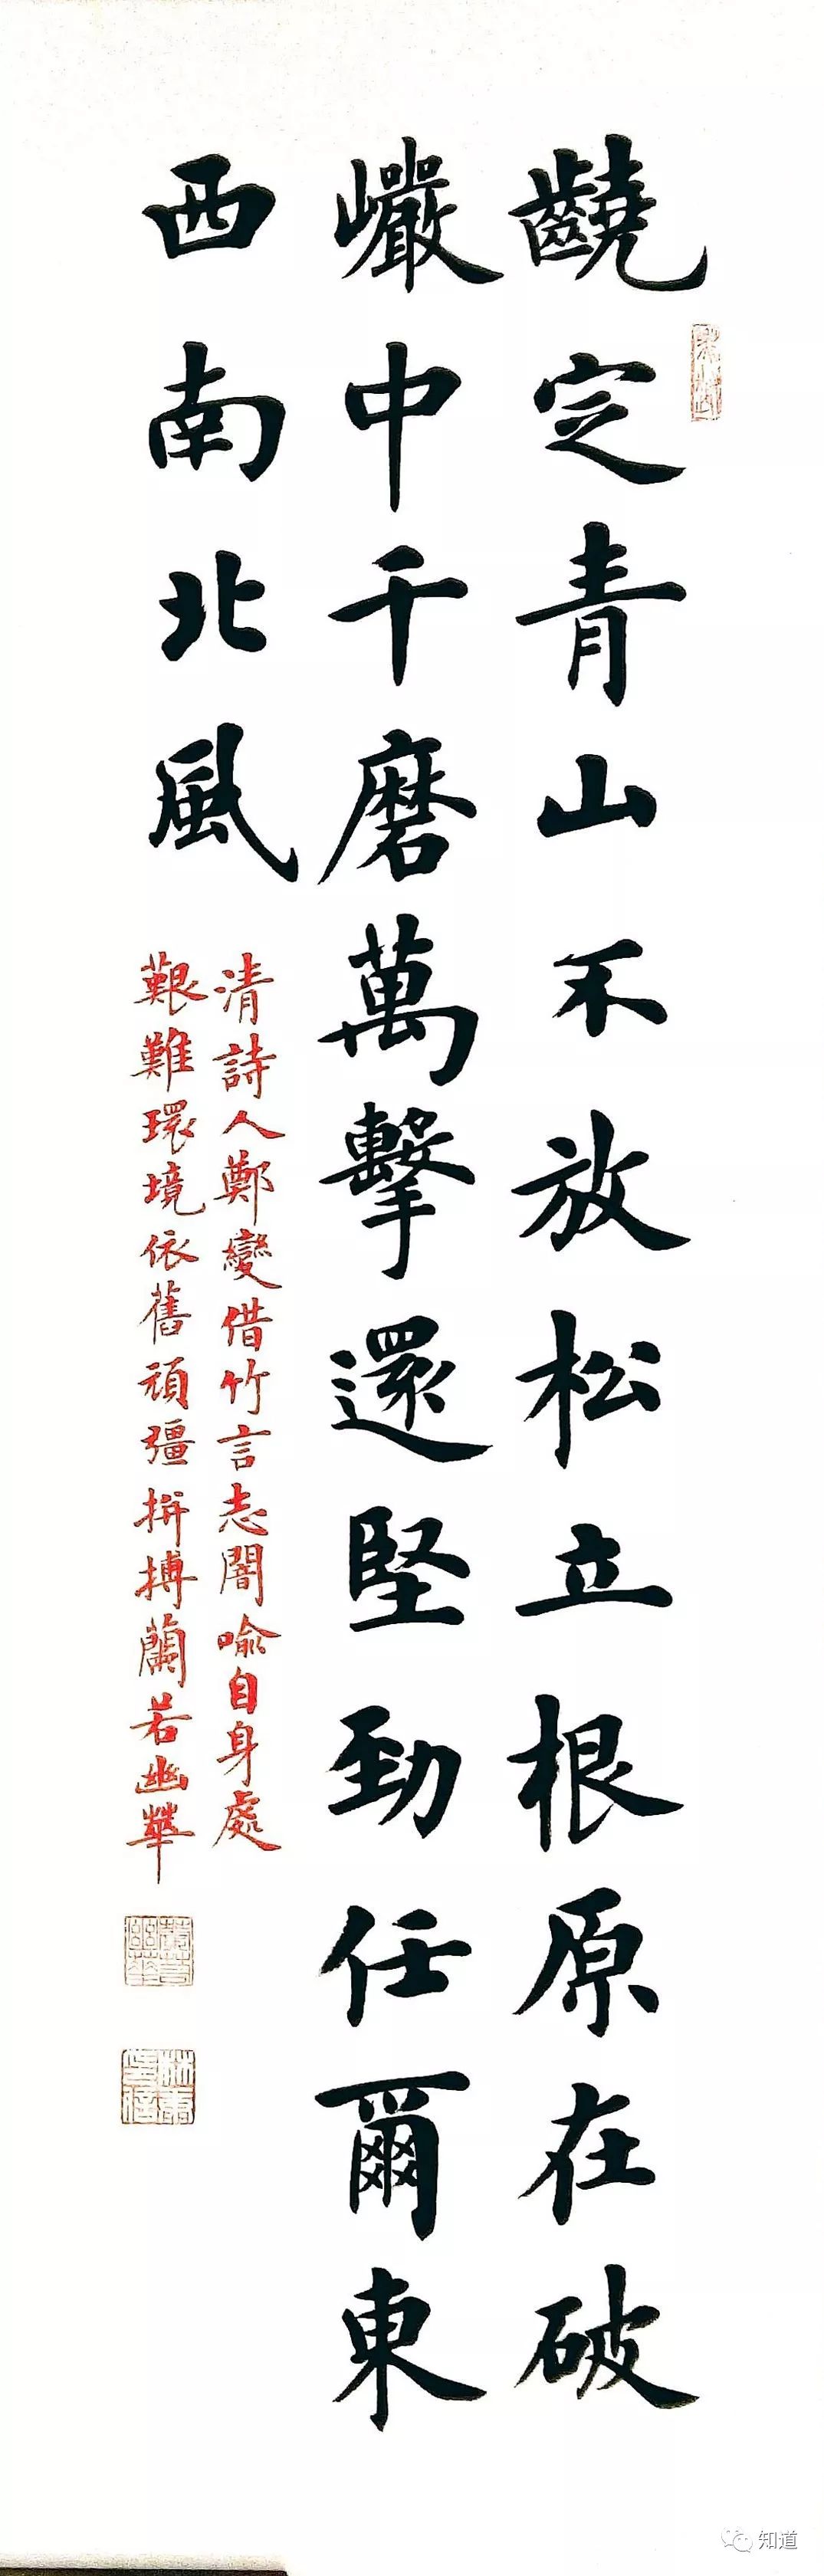 齩定青山不放松立根原在破
巖中千磨萬擊還堅勁任爾東
西南北風
清詩人鄭變借竹言志闇喻自身處
艱難環境依舊頑彊拚搏蘭若幽華
知道